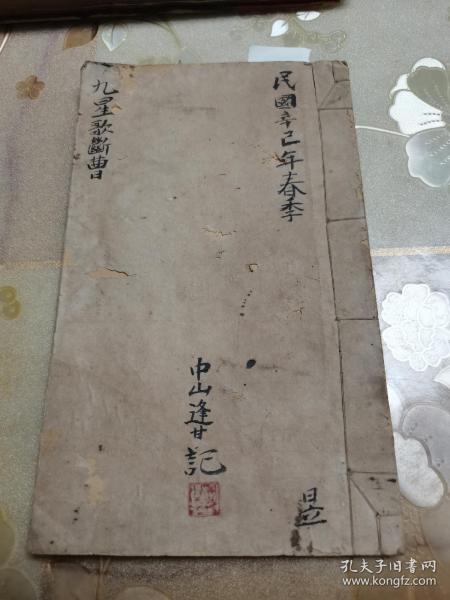 民國辛巳年春季
九星歌斷曹
中山逢甘記
昱
孔夫子旧书网
www.kongfz.com